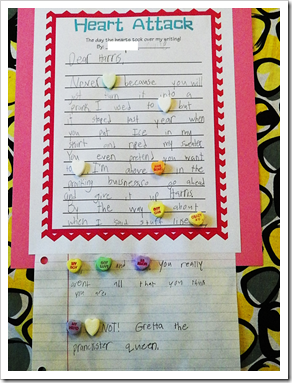 Heart Attack
The day the hearts took over my writing!
By:
Dear Harris,
Never because you will
just turn it into a
prank I used to but
I stoped last year when
you put Ice in my
shirt and riped my sweater
You even pretend you want
to I'm above in the
pranking business so go ahead
and give it up Harris
By the way about
when I said stuff like
and you really
arent all that you
NOT! Gretta the
prankster queen.